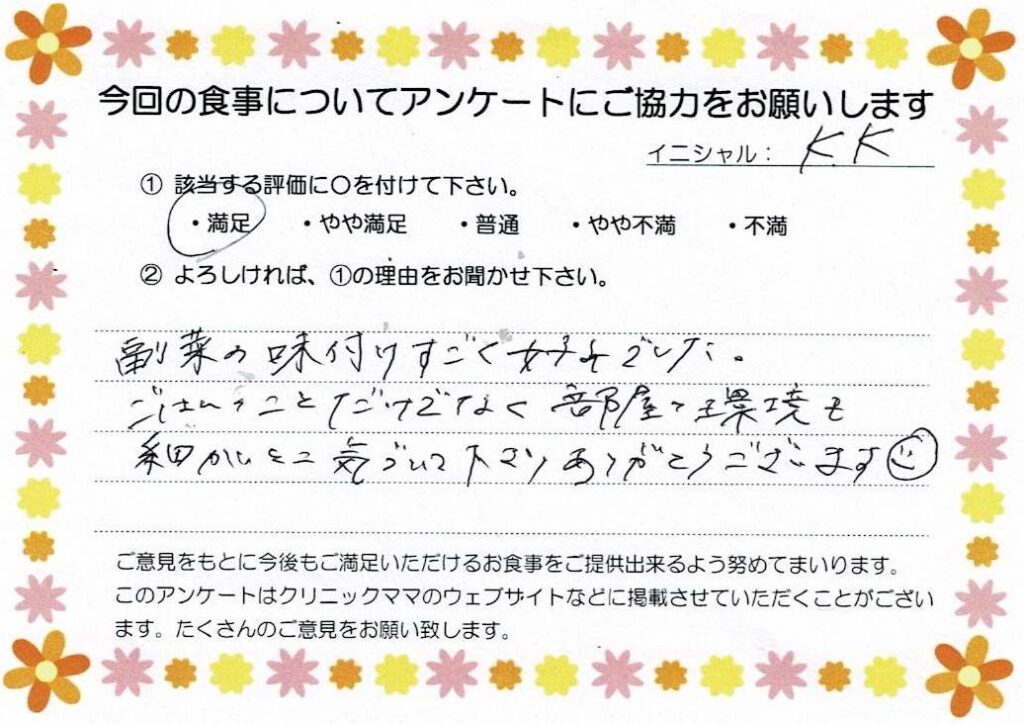 今回の食事についてアンケートにご協力をお願いします
イニシャル： K.K
① 該当する評価に〇を付けて下さい。
・満足 ・やや満足 ・普通 ・やや不満 ・不満
② よろしければ、①の理由をお聞かせ下さい。
副菜の味付けすごく好みでした。
ごはんのことだけでなく部屋の環境も
細かいとこ気づいて下さりありがとうございます
ご意見をもとに今後もご満足いただけるお食事をご提供出来るよう努めてまいります。
このアンケートはクリニックママのウェブサイトなどに掲載させていただくことがござい
ます。たくさんのご意見をお願い致します。